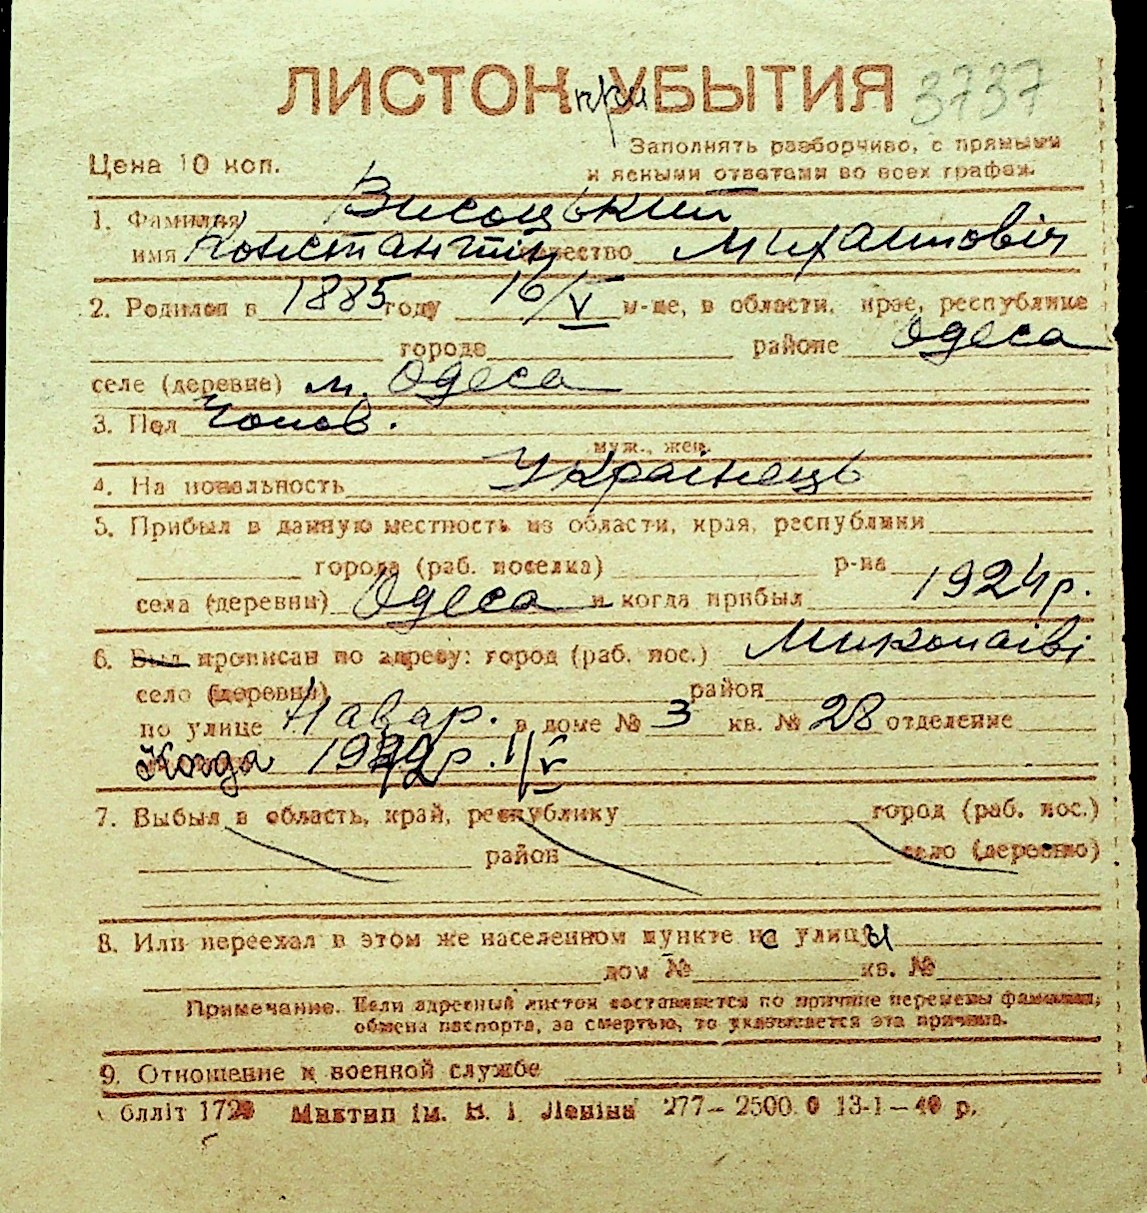 ЛИСТОК при УБЫТИЯ 3737
Заполнять разборчиво, с прямыми
Цена 10 коп. и ясными ответами во всех графах.
1. Фамилия Висоцький
имя Константин отчество Михайлович
2. Родился в 1885 году 16/V м-це, в области, крае, республике
городе районе Одеса
селе (деревне) м. Одеса
3. Пол Чолов.
муж., жен.
4. Национальность Українець
5. Прибыл в данную местность из области, края, республики
города (раб. поселка) р-на
села (деревни) Одеса и когда прибыл 1924 р.
6. Был прописан по адресу: город (раб. пос.) Миколаїві
село (деревня) район
по улице Навар. в доме № 3 кв. № 28 отделение
Когда 1942 р. 1/V
7. Выбыл в область, край, республику город (раб. пос.)
район село (деревню)
8. Или переехал в этом же населенном пункте с улицы
дом № кв. №
Примечание. Если адресный листок составляется по причине перемены фамилии,
обмена паспорта, за смертью, то указывается эта причина.
9. Отношение к военной службе
блліт 172 Миктип ім. В. І. Леніна 277—2500. 0 13-1—40 р.